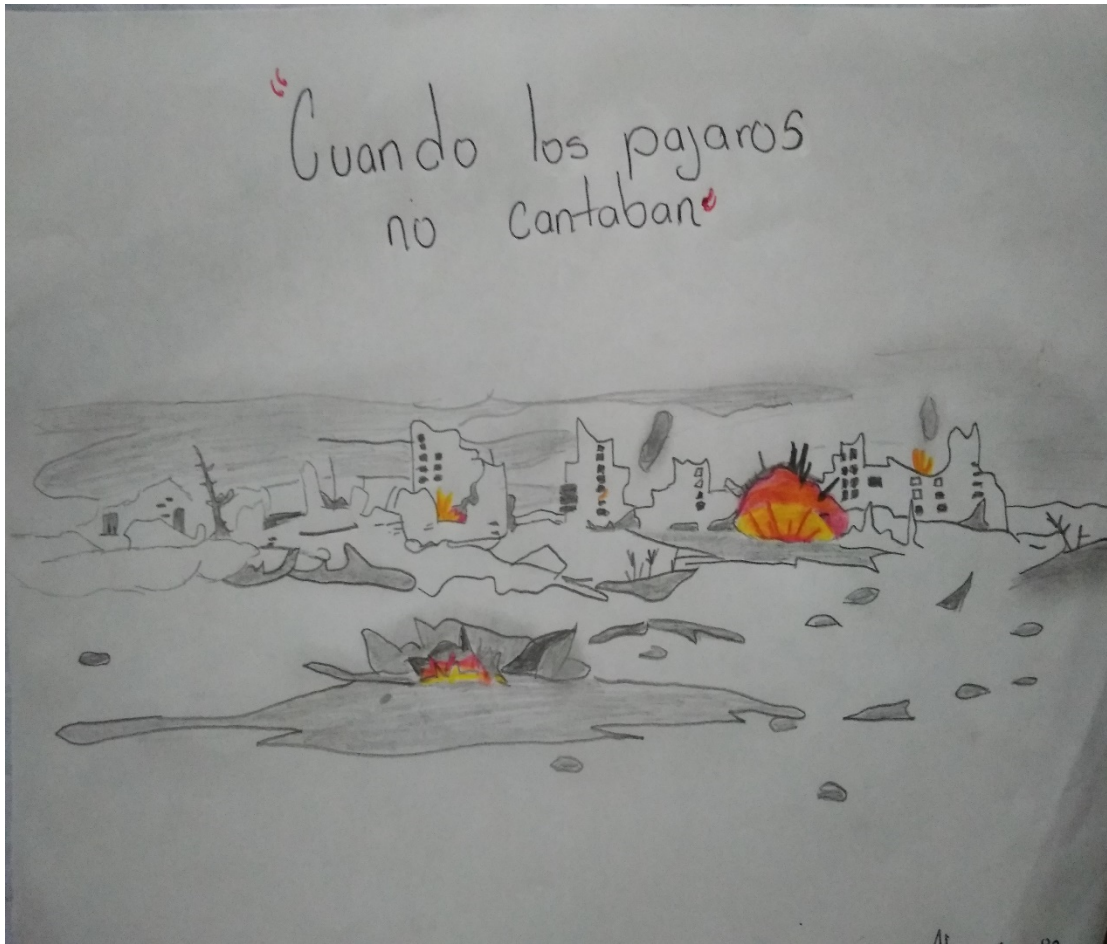 "Cuando los pajaros
no cantaban"